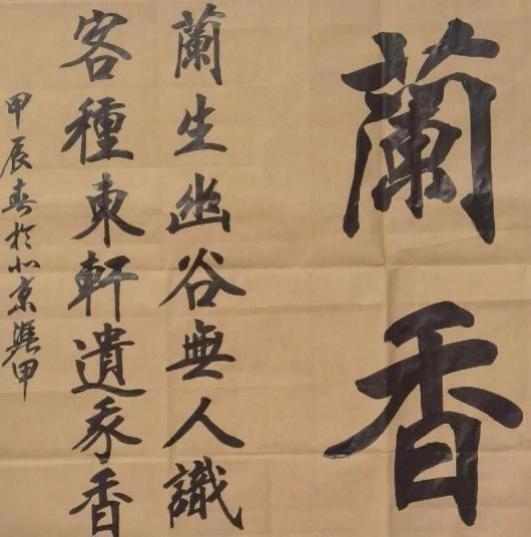 蘭香
蘭生幽谷無人識
客種東軒遺我香
甲辰春於北京甲